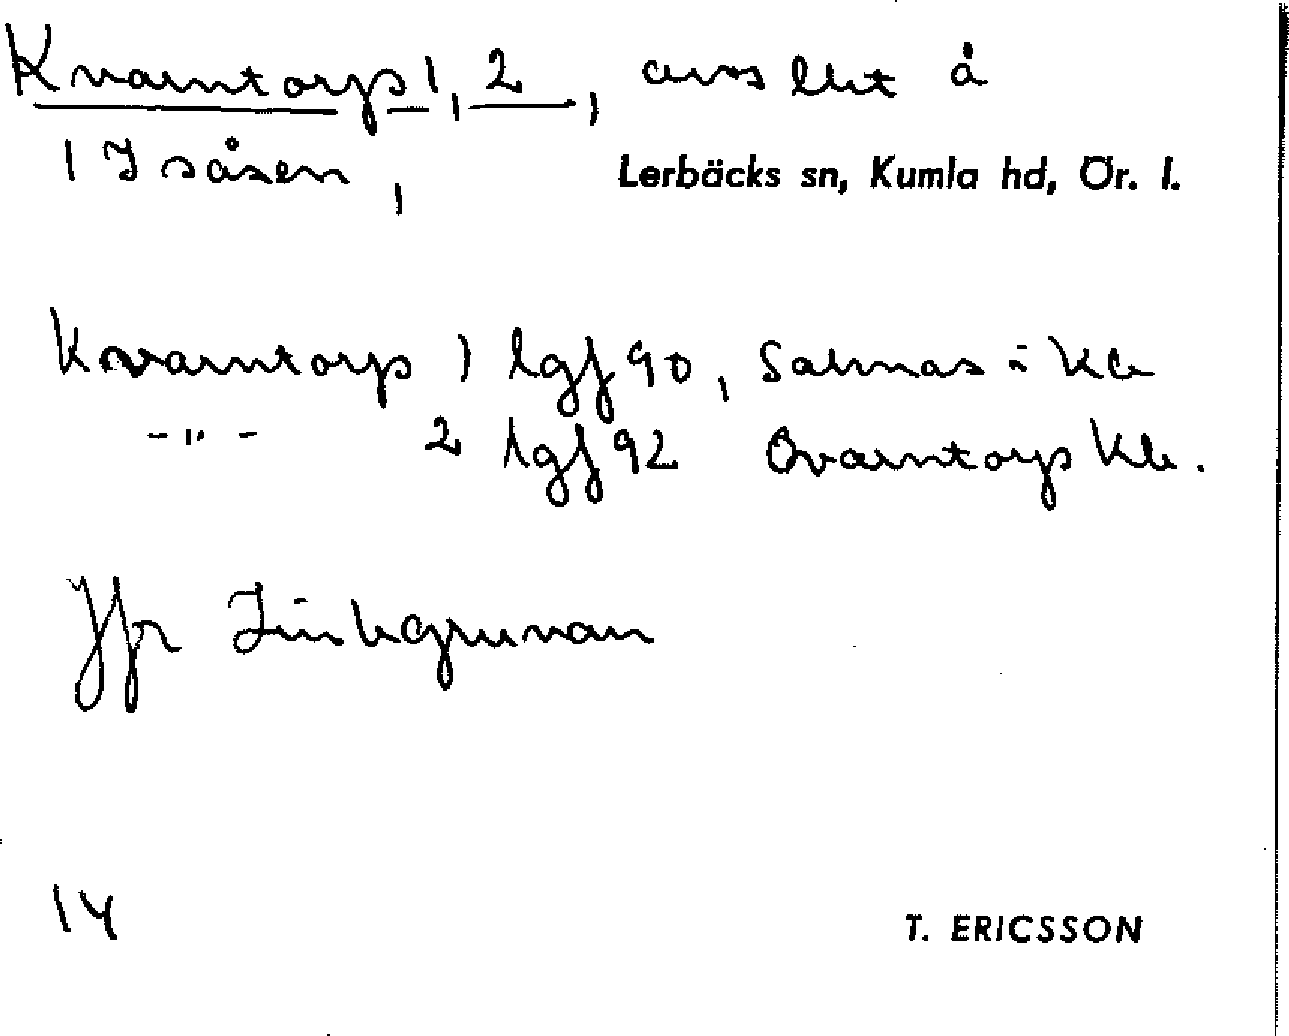 Kvarntorp 1, 2, avs lht å
1 Isåsen,
Lerbäcks sn, Kumla hd, Ör. l.
Kvarntorp 1 lgf 90, Saknas i Kb
-"- 2 lgf 92 Qvarntorp Kb.
Jfr Zinkgruvan
14
T. ERICSSON